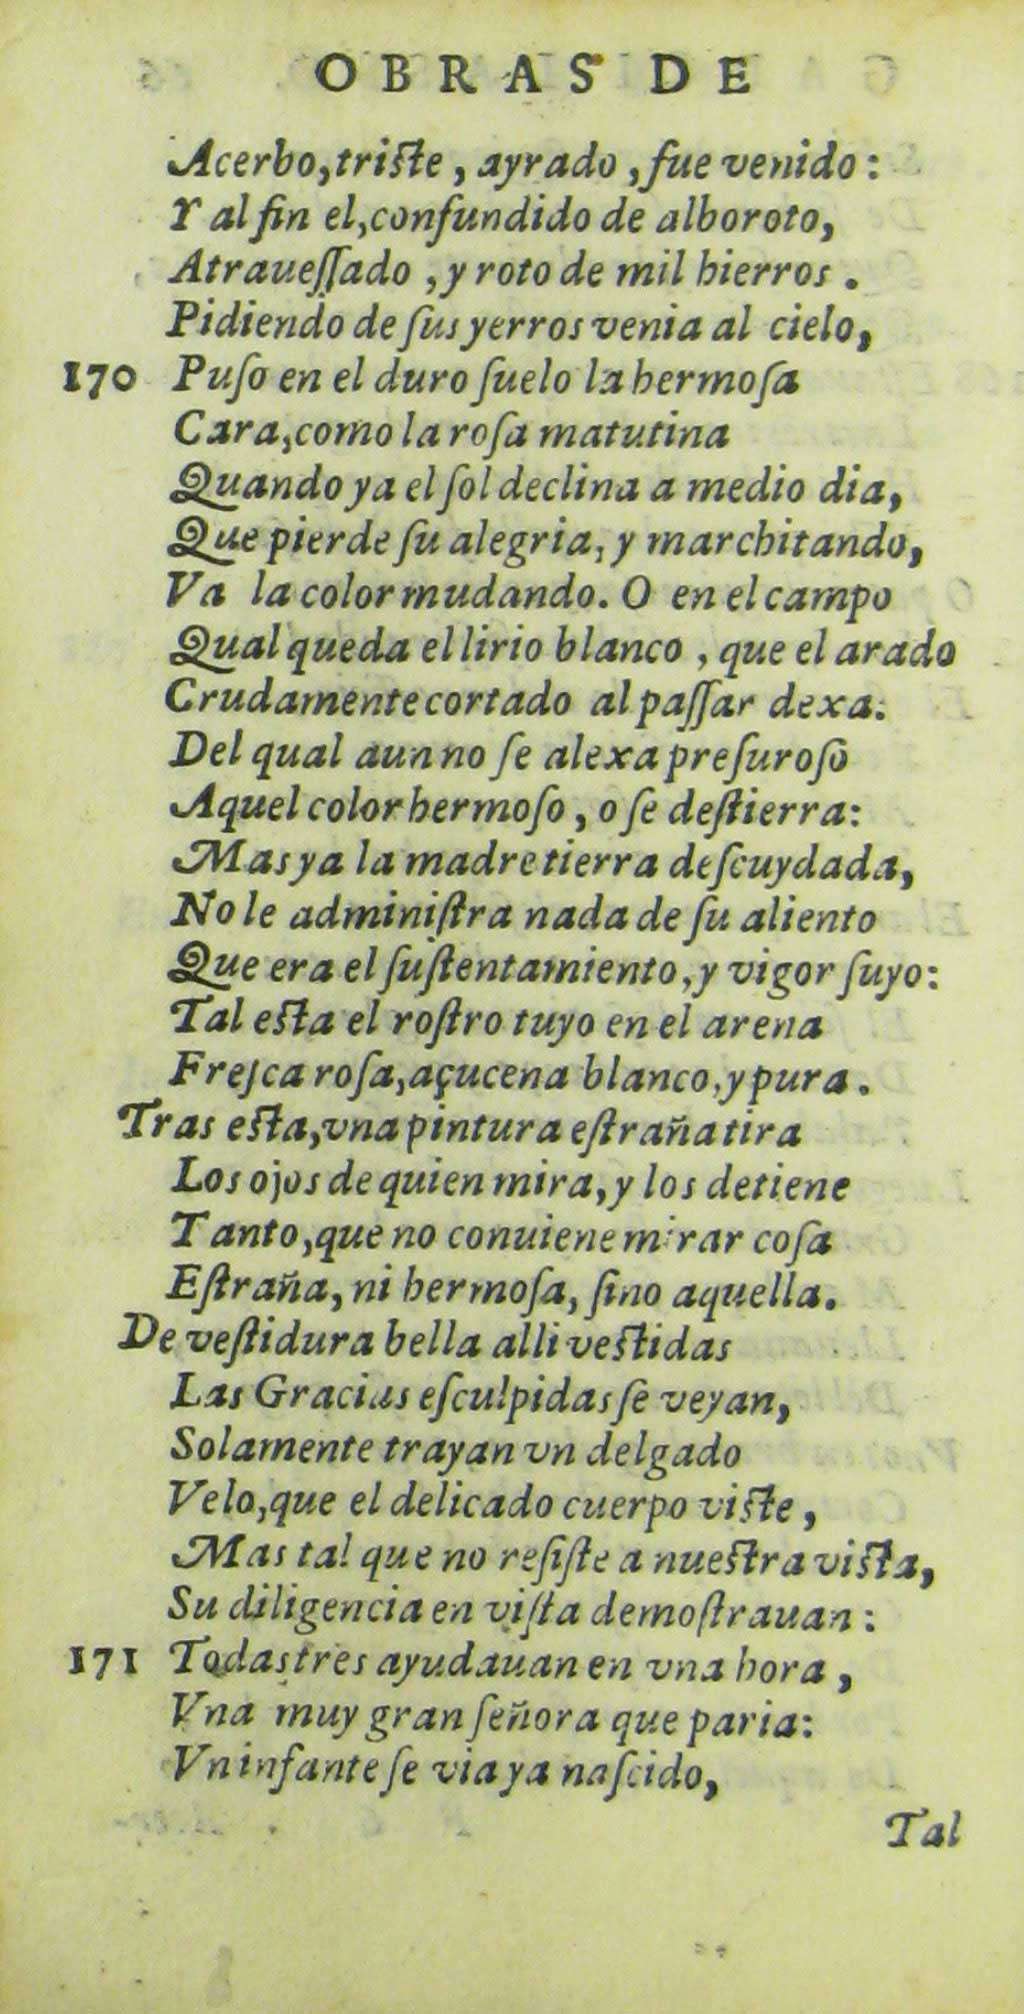 OBRAS DE
Acerbo, triste, ayrado, fue venido:
Y al fin el, confundido de alboroto,
Atraueſſado, y roto de mil hierros.
Pidiendo de ſus yerros venia al cielo,
170 Puſo en el duro ſuelo la hermoſa
Cara, como la roſa matutina
Quando ya el ſol declina a medio dia,
Que pierde ſu alegria, y marchitando,
Va la color mudando. O en el campo
Qual queda el lirio blanco, que el arado
Crudamente cortado al paſſar dexa:
Del qual aun no ſe alexa preſuroſo
Aquel color hermoſo, o ſe deſtierra:
Mas ya la madre tierra deſcuydada,
No le adminiſtra nada de ſu aliento
Que era el ſuſtentamiento, y vigor ſuyo:
Tal esta el roſtro tuyo en el arena
Freſca roſa, açucena blanco, y pura.
Tras esta, vna pintura eſtraña tira
Los ojos de quien mira, y los detiene
Tanto, que no conuiene mirar coſa
Eſtraña, ni hermoſa, ſino aquella.
De veſtidura bella alli vestidas
Las Gracias eſculpidas ſe veyan,
Solamente trayan vn delgado
Velo, que el delicado cuerpo viste,
Mas tal que no reſiſte a nuestra vista,
Su diligencia en viſta demoſtrauan:
171 Todas tres ayudauan en vna hora,
Vna muy gran ſeñora que paria:
Vn infante ſe via ya naſcido,
Tal